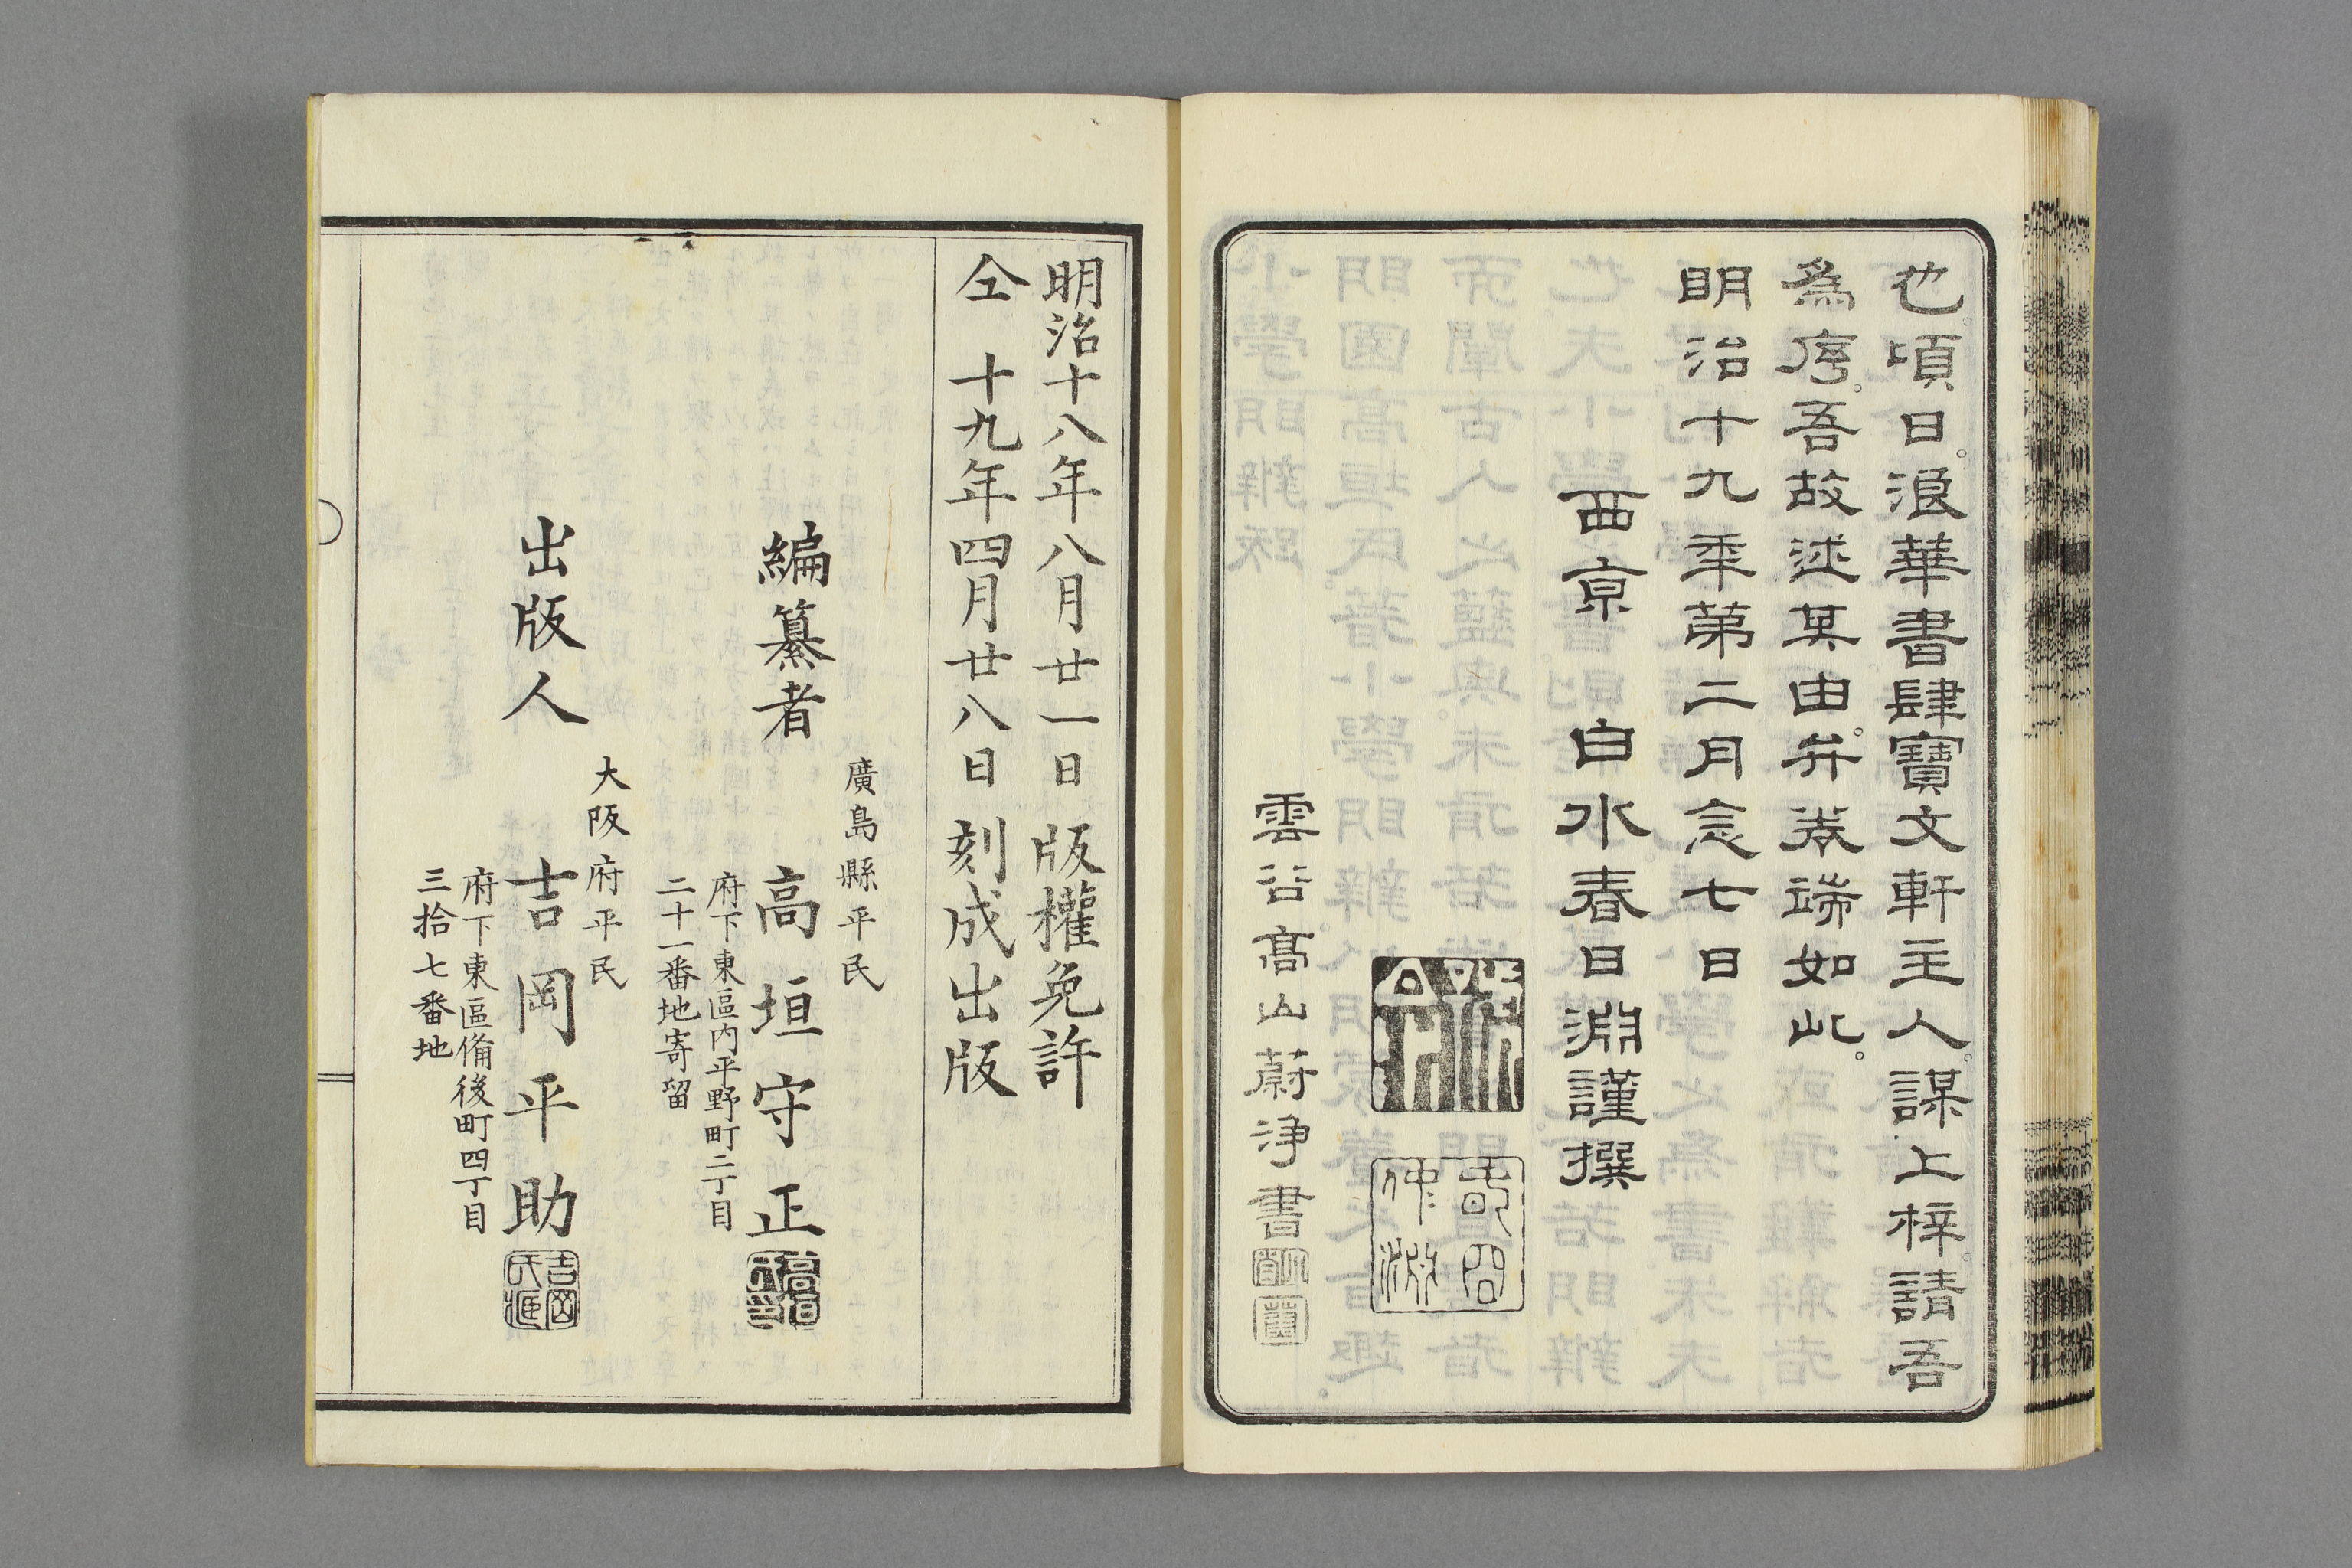 也頃日。浪華書肆寶文軒主人。謀上梓。請吾
為序。吾故述其由。弁巻端如此。
明治十九年第二月念七日
西京 白水春日淵謹撰
雲谷高山蔚淨書
明治十八年八月廿一日 版權免許
仝 十九年四月廿八日 刻成出版
廣島縣平民
編纂者 高垣守正
高垣
氏印
府下東區内平野町二丁目
二十一番地寄留
大阪府平民
出版人 吉岡平助
吉岡
府下東區備後町四丁目
三拾七番地